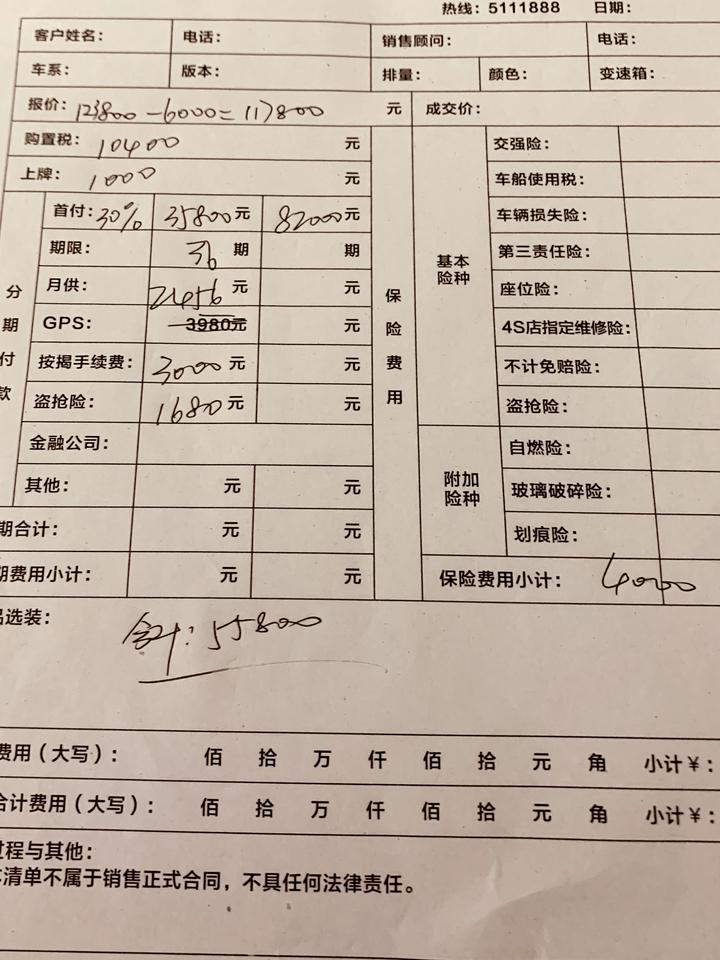 热线：5111888 日期：
客户姓名： 电话： 销售顾问： 电话：
车系： 版本： 排量： 颜色： 变速箱：
报价：123800-6000=117800 元 成交价：
购置税：10400 元 交强险：
上牌：1000 元 车船使用税：
首付：30% 35800元 82000元 车辆损失险：
期限： 36 期 期 第三责任险：
基本
险种
月供： 2456 元 元 座位险：
分
期
付
款
保
险
费
用
GPS： 3980元 元 4S店指定维修险：
按揭手续费： 3000元 元 不计免赔险：
盗抢险： 1680元 元 盗抢险：
金融公司： 自燃险：
附加
险种
其他： 元 元 玻璃破碎险：
期合计： 元 元 划痕险：
期费用小计： 元 元 保险费用小计： 4000
品选装：
合计：55800
费用（大写）： 佰 拾 万 仟 佰 拾 元 角 小计￥：
合计费用（大写）： 佰 拾 万 仟 佰 拾 元 角 小计￥：
过程与其他：
本清单不属于销售正式合同，不具任何法律责任。